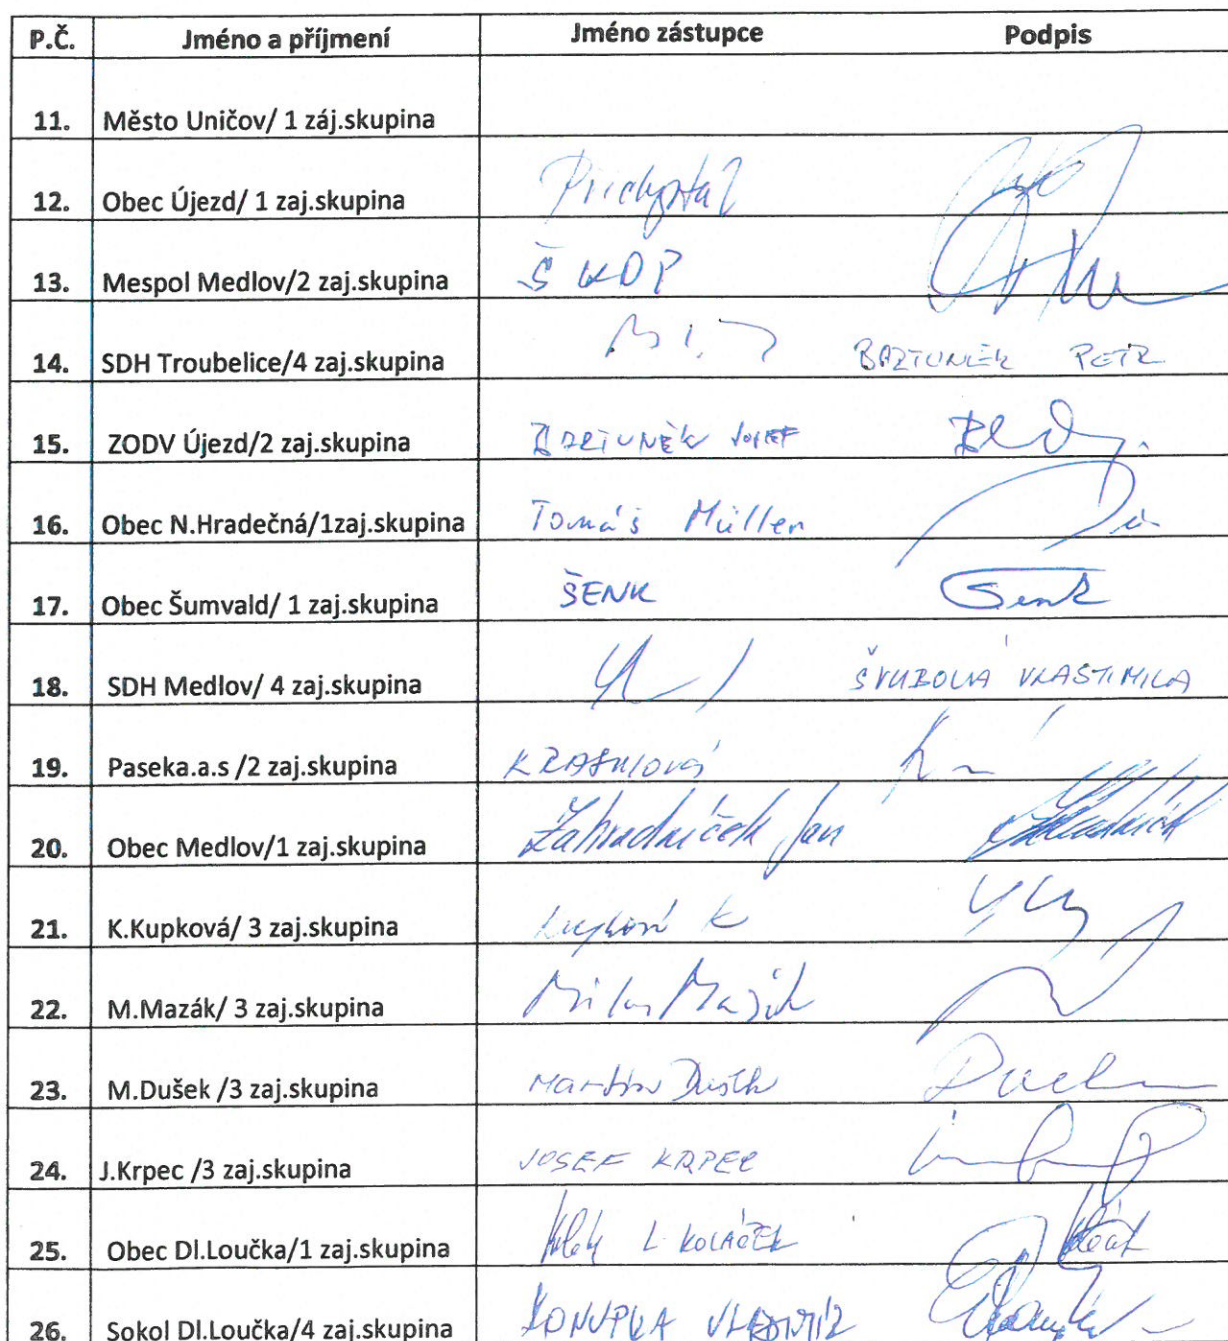 P.Č. Jméno a příjmení Jméno zástupce Podpis
11. Město Uničov/ 1 záj.skupina
12. Obec Újezd/ 1 zaj.skupina Přichystal
13. Mespol Medlov/2 zaj.skupina ŠKOP
14. SDH Troubelice/4 zaj.skupina BARTUNĚK PETR
15. ZODV Újezd/2 zaj.skupina BARTUNĚK JOSEF
16. Obec N.Hradečná/1zaj.skupina Tomáš Müller
17. Obec Šumvald/ 1 zaj.skupina ŠENK Šenk
18. SDH Medlov/ 4 zaj.skupina VLASTIMILA
19. Paseka.a.s /2 zaj.skupina
20. Obec Medlov/1 zaj.skupina Zahradníček Jan
21. K.Kupková/ 3 zaj.skupina Kupková K
22. M.Mazák/ 3 zaj.skupina Milan Mazák
23. M.Dušek /3 zaj.skupina Martin Dušek
24. J.Krpec /3 zaj.skupina JOSEF KRPEC
25. Obec Dl.Loučka/1 zaj.skupina L KOLÁČEK
26. Sokol Dl.Loučka/4 zaj.skupina KONUPKA VLADIMÍR